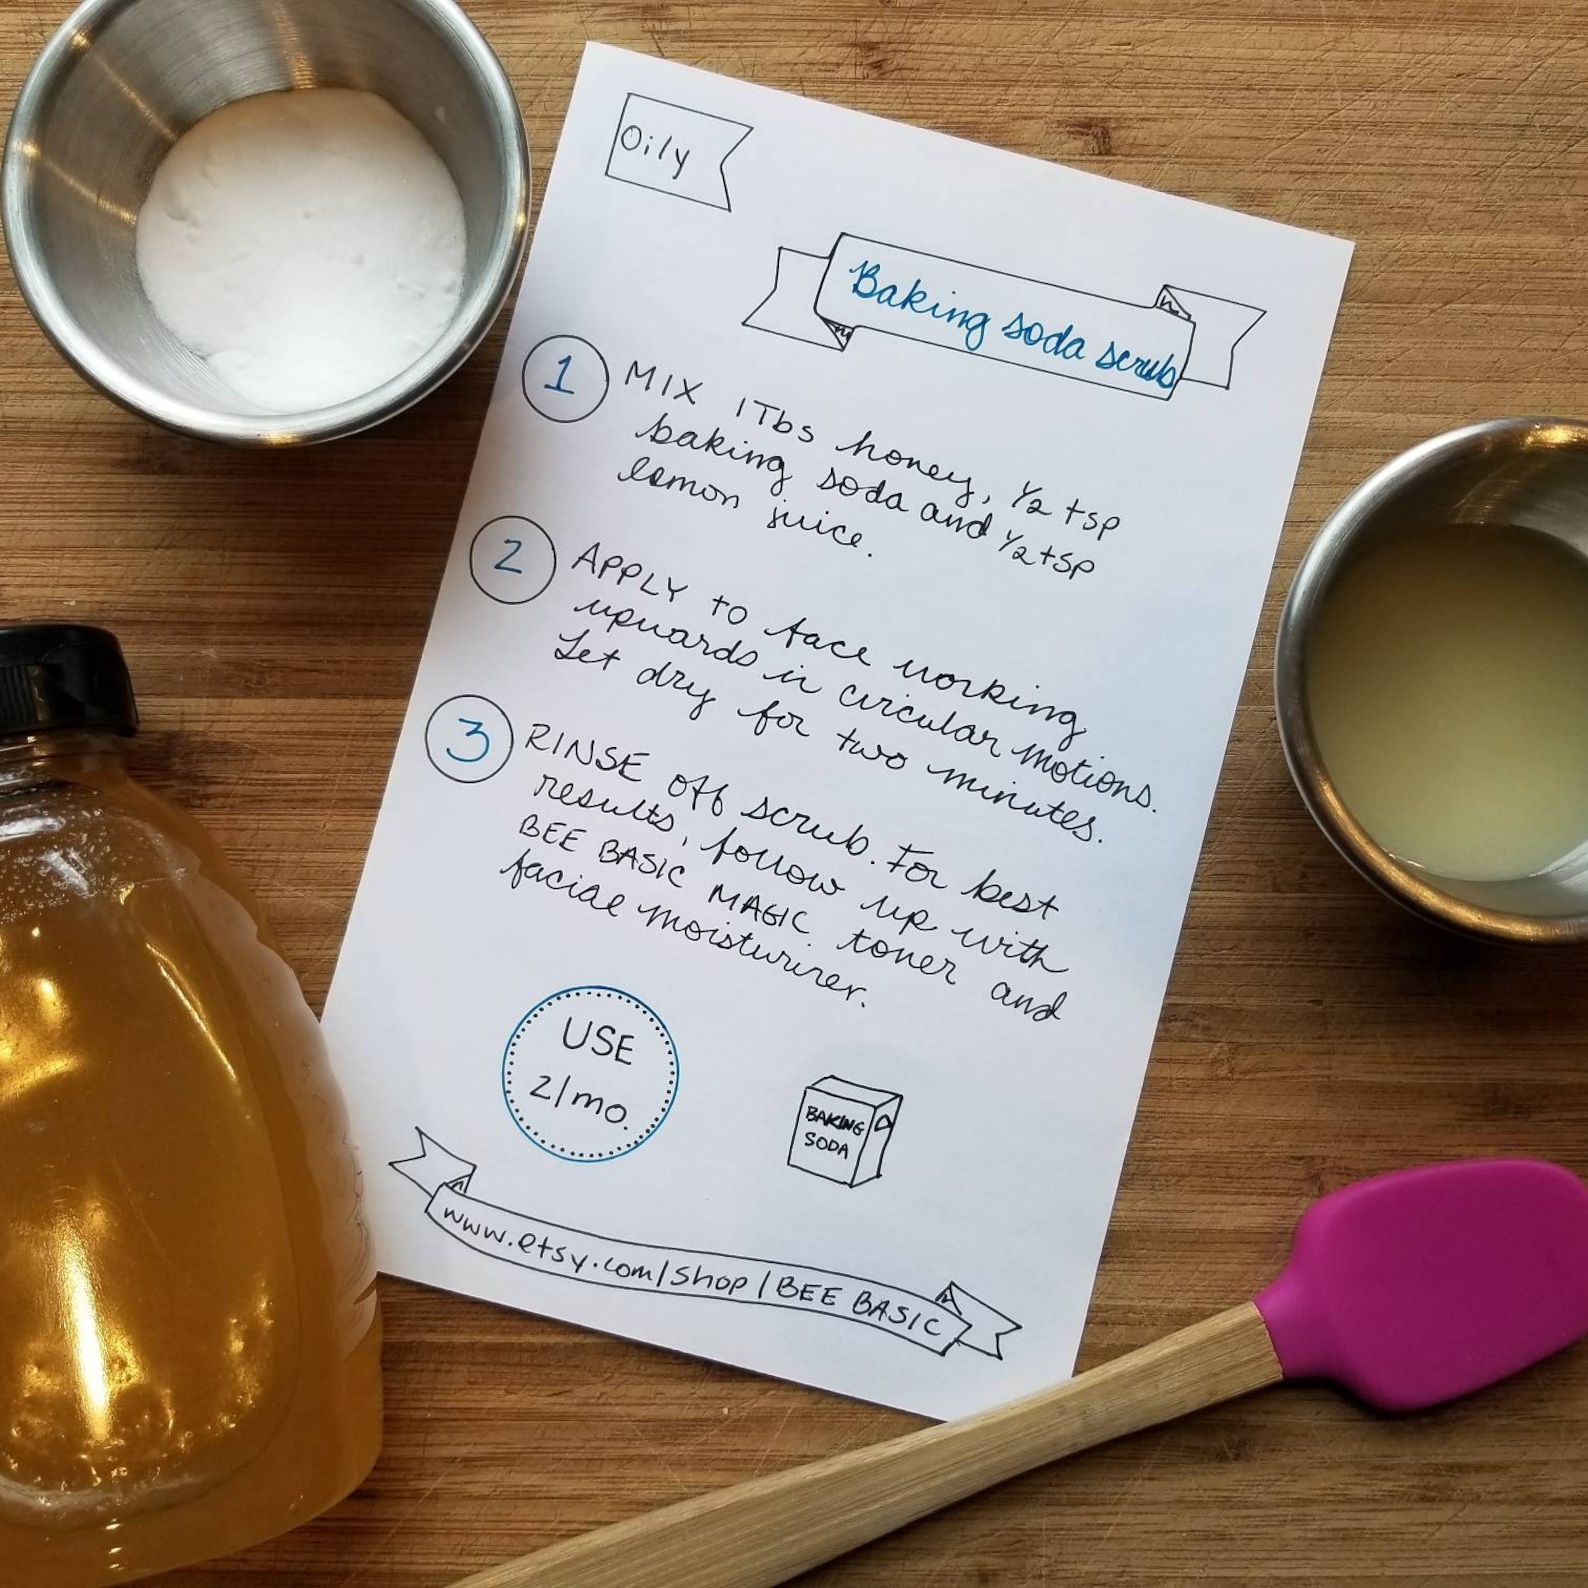 Oily
Baking soda scrub
1 MIX 1Tbs honey, 1/2 tsp
baking soda and 1/2 tsp
lemon juice.
2 APPLY to face working
upwards in circular motions.
Let dry for two minutes.
3 RINSE off scrub. For best
results, follow up with
BEE BASIC MAGIC toner and
facial moisturizer.
USE
2/mo.
BAKING
SODA
www.etsy.com/shop/BEE BASIC